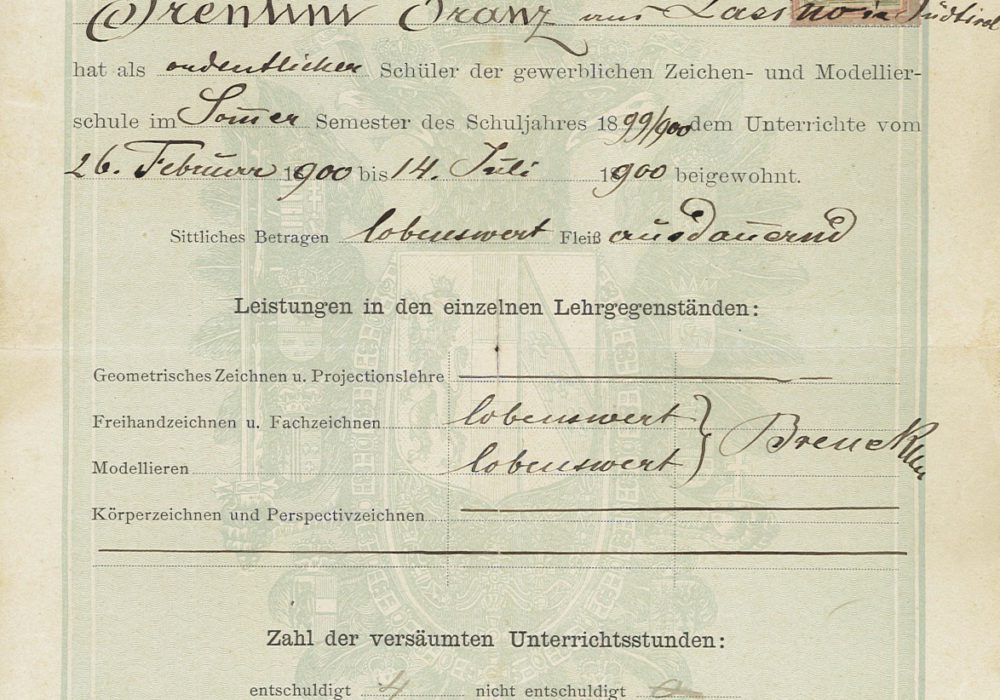 Trentini Franz aus Lasino in Südtirol
hat als ordentlicher Schüler der gewerblichen Zeichen- und Modellier-
schule im Som̄er Semester des Schuljahres 1899/900 dem Unterrichte vom
26. Februar 1900 bis 14. Juli 1900 beigewohnt.
Sittliches Betragen lobenswert Fleiß ausdauernd
Leistungen in den einzelnen Lehrgegenständen:
Geometrisches Zeichnen u. Projectionslehre
Freihandzeichnen u. Fachzeichnen lobenswert
Modellieren lobenswert
Körperzeichnen und Perspectivzeichnen
Zahl der versäumten Unterrichtsstunden:
entschuldigt 4 nicht entschuldigt